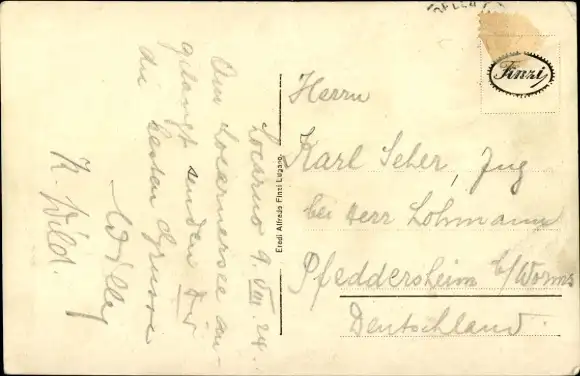 Locarno 9. VIII. 24.
Am Locarnersee an-
gelangt senden Dir
die besten Grüsse
Willy
K. Wild.
Eredi Alfredo Finzi Lugano.
Finzi
Herrn
Karl Seher, Jng
bei Herr Lohmann
Pfeddersheim b/Worms
Deutschland.